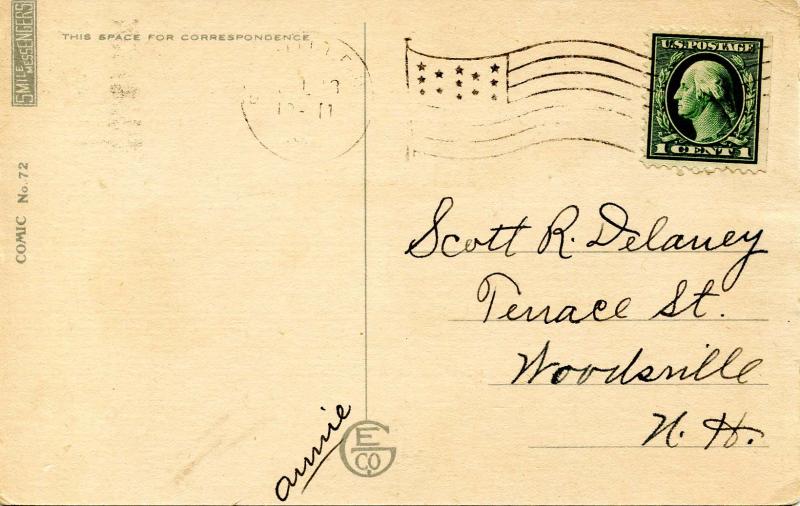 SMILE
MESSENGERS
THIS SPACE FOR CORRESPONDENCE
U.S. POSTAGE
1 CENT 1
COMIC No. 72
Scott R. Delaney
Terrace St.
Woodsville
N. H.
annie
E G
CO.